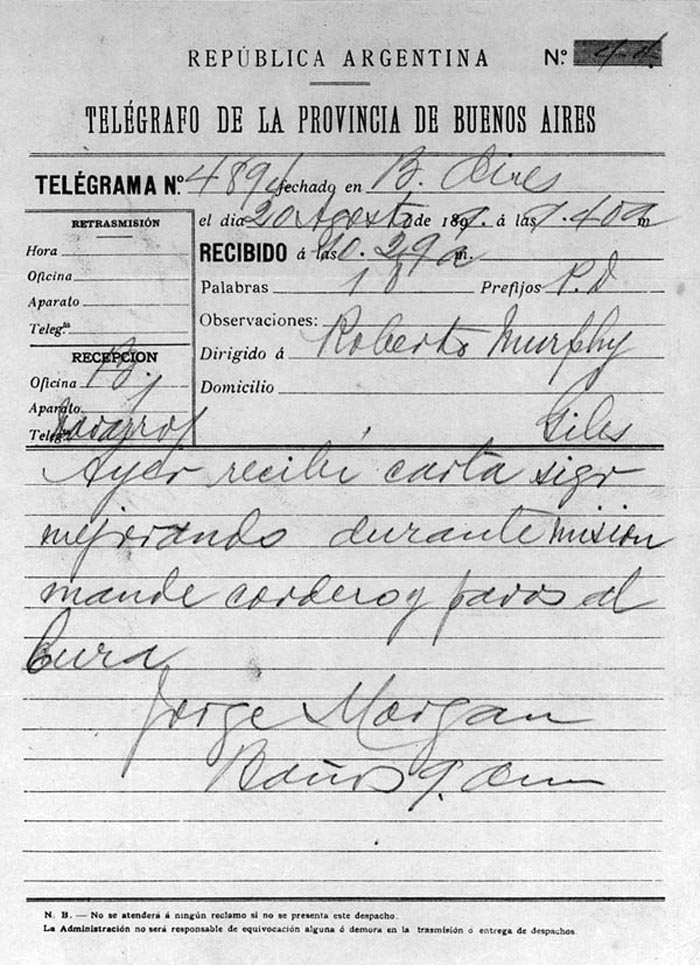 REPÚBLICA ARGENTINA Nº
TELÉGRAFO DE LA PROVINCIA DE BUENOS AIRES
TELÉGRAMA N.º 489 fechado en B. Aires
el dia 20 Agosto de 189 á las 9.40 a m
RETRASMISIÓN
Hora
Oficina
Aparato
Teleg.ta
RECIBIDO á las 10.29 a m.
Palabras 18 Prefijos P.D
Observaciones:
Dirigido á Roberto Murphy
Domicilio
Giles
RECEPCION
Oficina
Aparato
Teleg.ta
Ayer recibi carta sigo
mejorando durante mision
mande cordero y pavos al
Cura
Jorge Morgan
Baños
N. B. — No se atenderá á ningún reclamo si no se presenta este despacho.
La Administración no será responsable de equivocación alguna ó demora en la trasmisión ó entrega de despachos